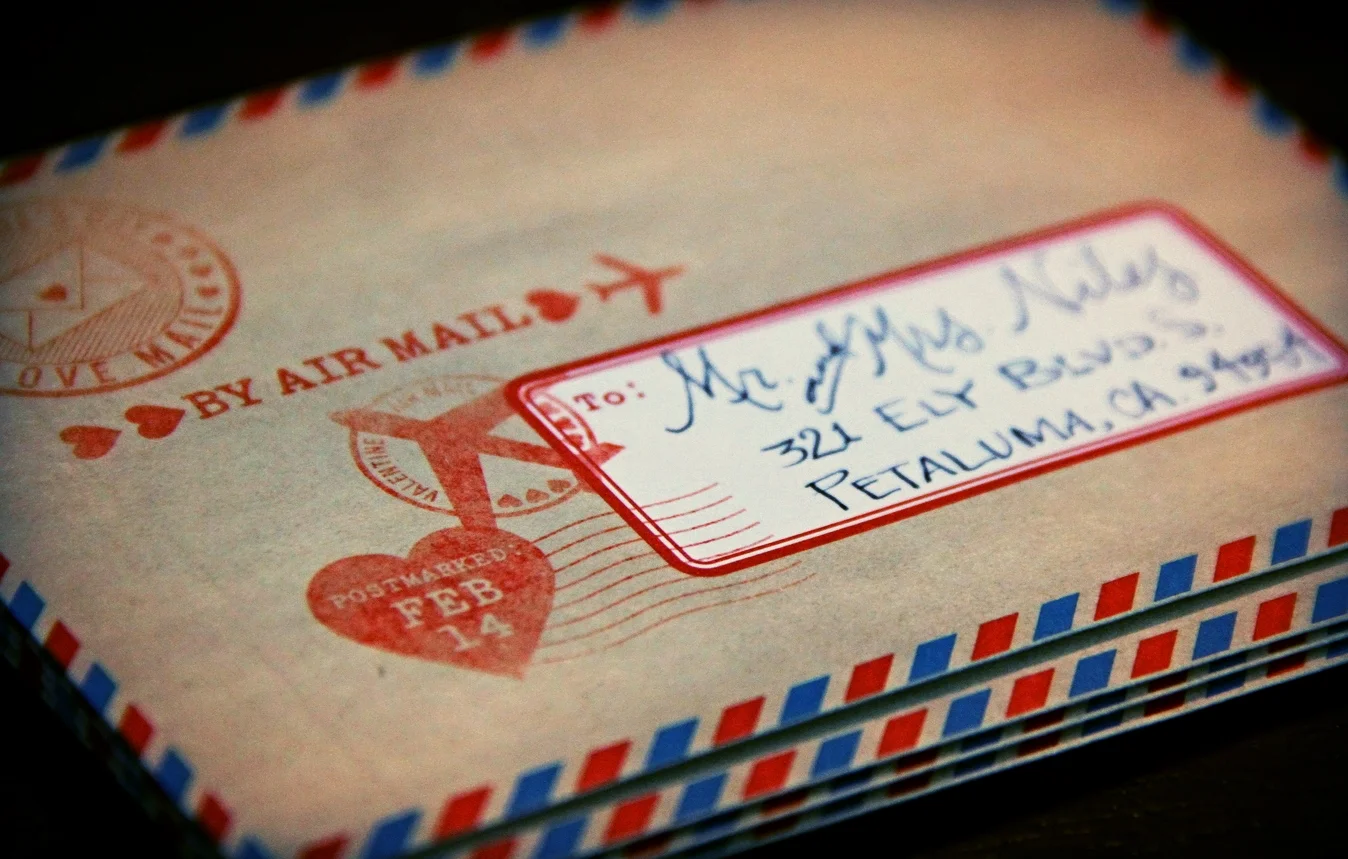 LOVE MAIL
BY AIR MAIL
VALENTINE
POSTMARKED:
FEB
14
To:
Mr. and Mrs. Niles
321 ELY BLVD. S.
PETALUMA, CA. 94954